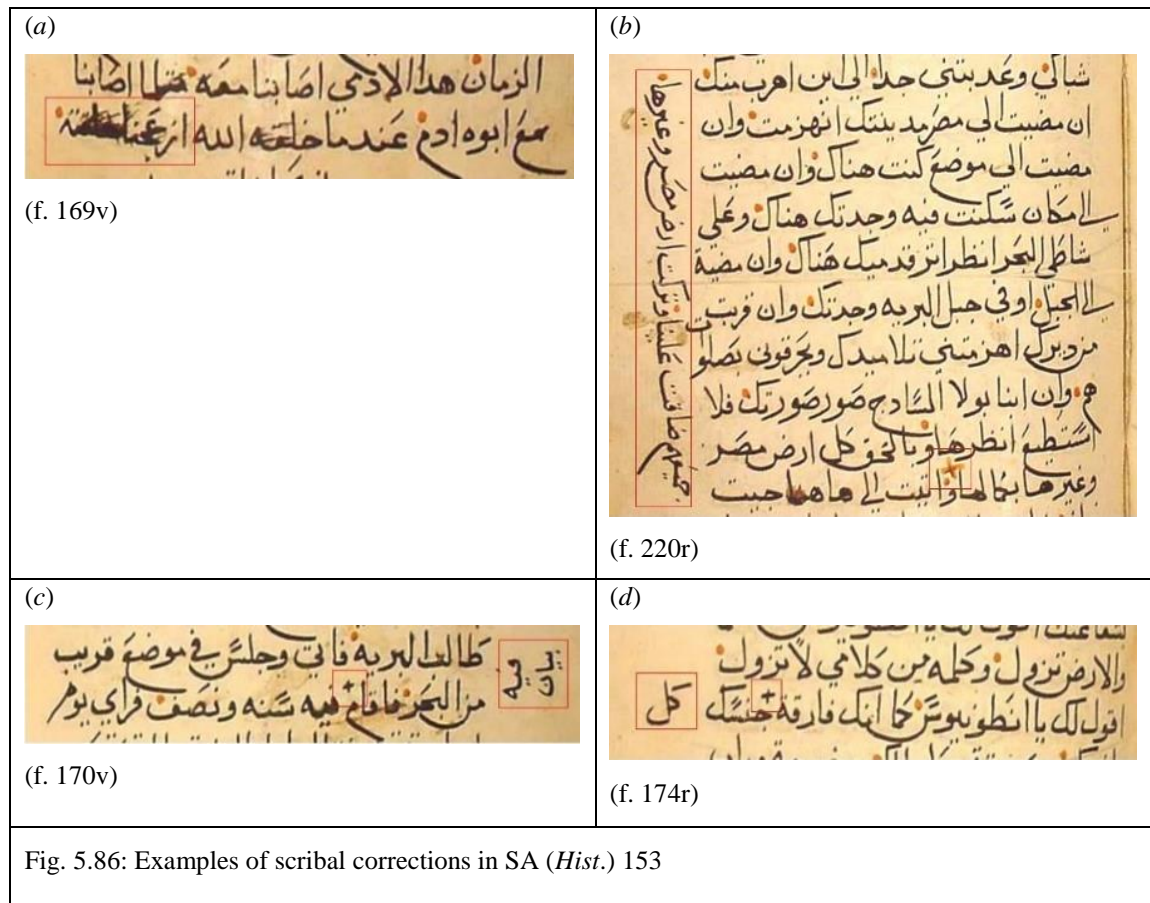 (a)
الزمان هدا الادمي اصابنا معه متلما اصابنا
مع ابوه ادم عندما خلقه الله
(f. 169v)
(b)
شاني وعدبتني جدا الي اين اهرب منك
ان مضيت الي مصر مدينتك انهزمت وان
مضيت الي موضع كنت هناك وان مضيت
الي مكان سكنت فيه وجدتك هناك وعلي
شاطي البحر انظر اتر قدميك هناك وان مضية
الي الجبل او في جبل البريه وجدتك وان قربت
من ديرك اهزمتني تلاميدك ويحرقوني بصلوات
هم وان ابنا بولا السادج صور صورتك فلا
استطيع انظرها وبالحق كل ارض مصر
وغيرها بكمالها واتيت الي هاهنا جيت
جميعهم ضاقت علينا وتركت ارض مصر وغيرها
(f. 220r)
(c)
طالب البريه فاتي وجلس في موضع قريب
من البحر فاقام + فيه سنه ونصف فراي يوم
بيان
فيه
(f. 170v)
(d)
والارض تزول وكلمه من كلامي لا تزول
اقول لك يا انطونيوس كما انك فارقة + جنسك
كل
(f. 174r)
Fig. 5.86: Examples of scribal corrections in SA (Hist.) 153